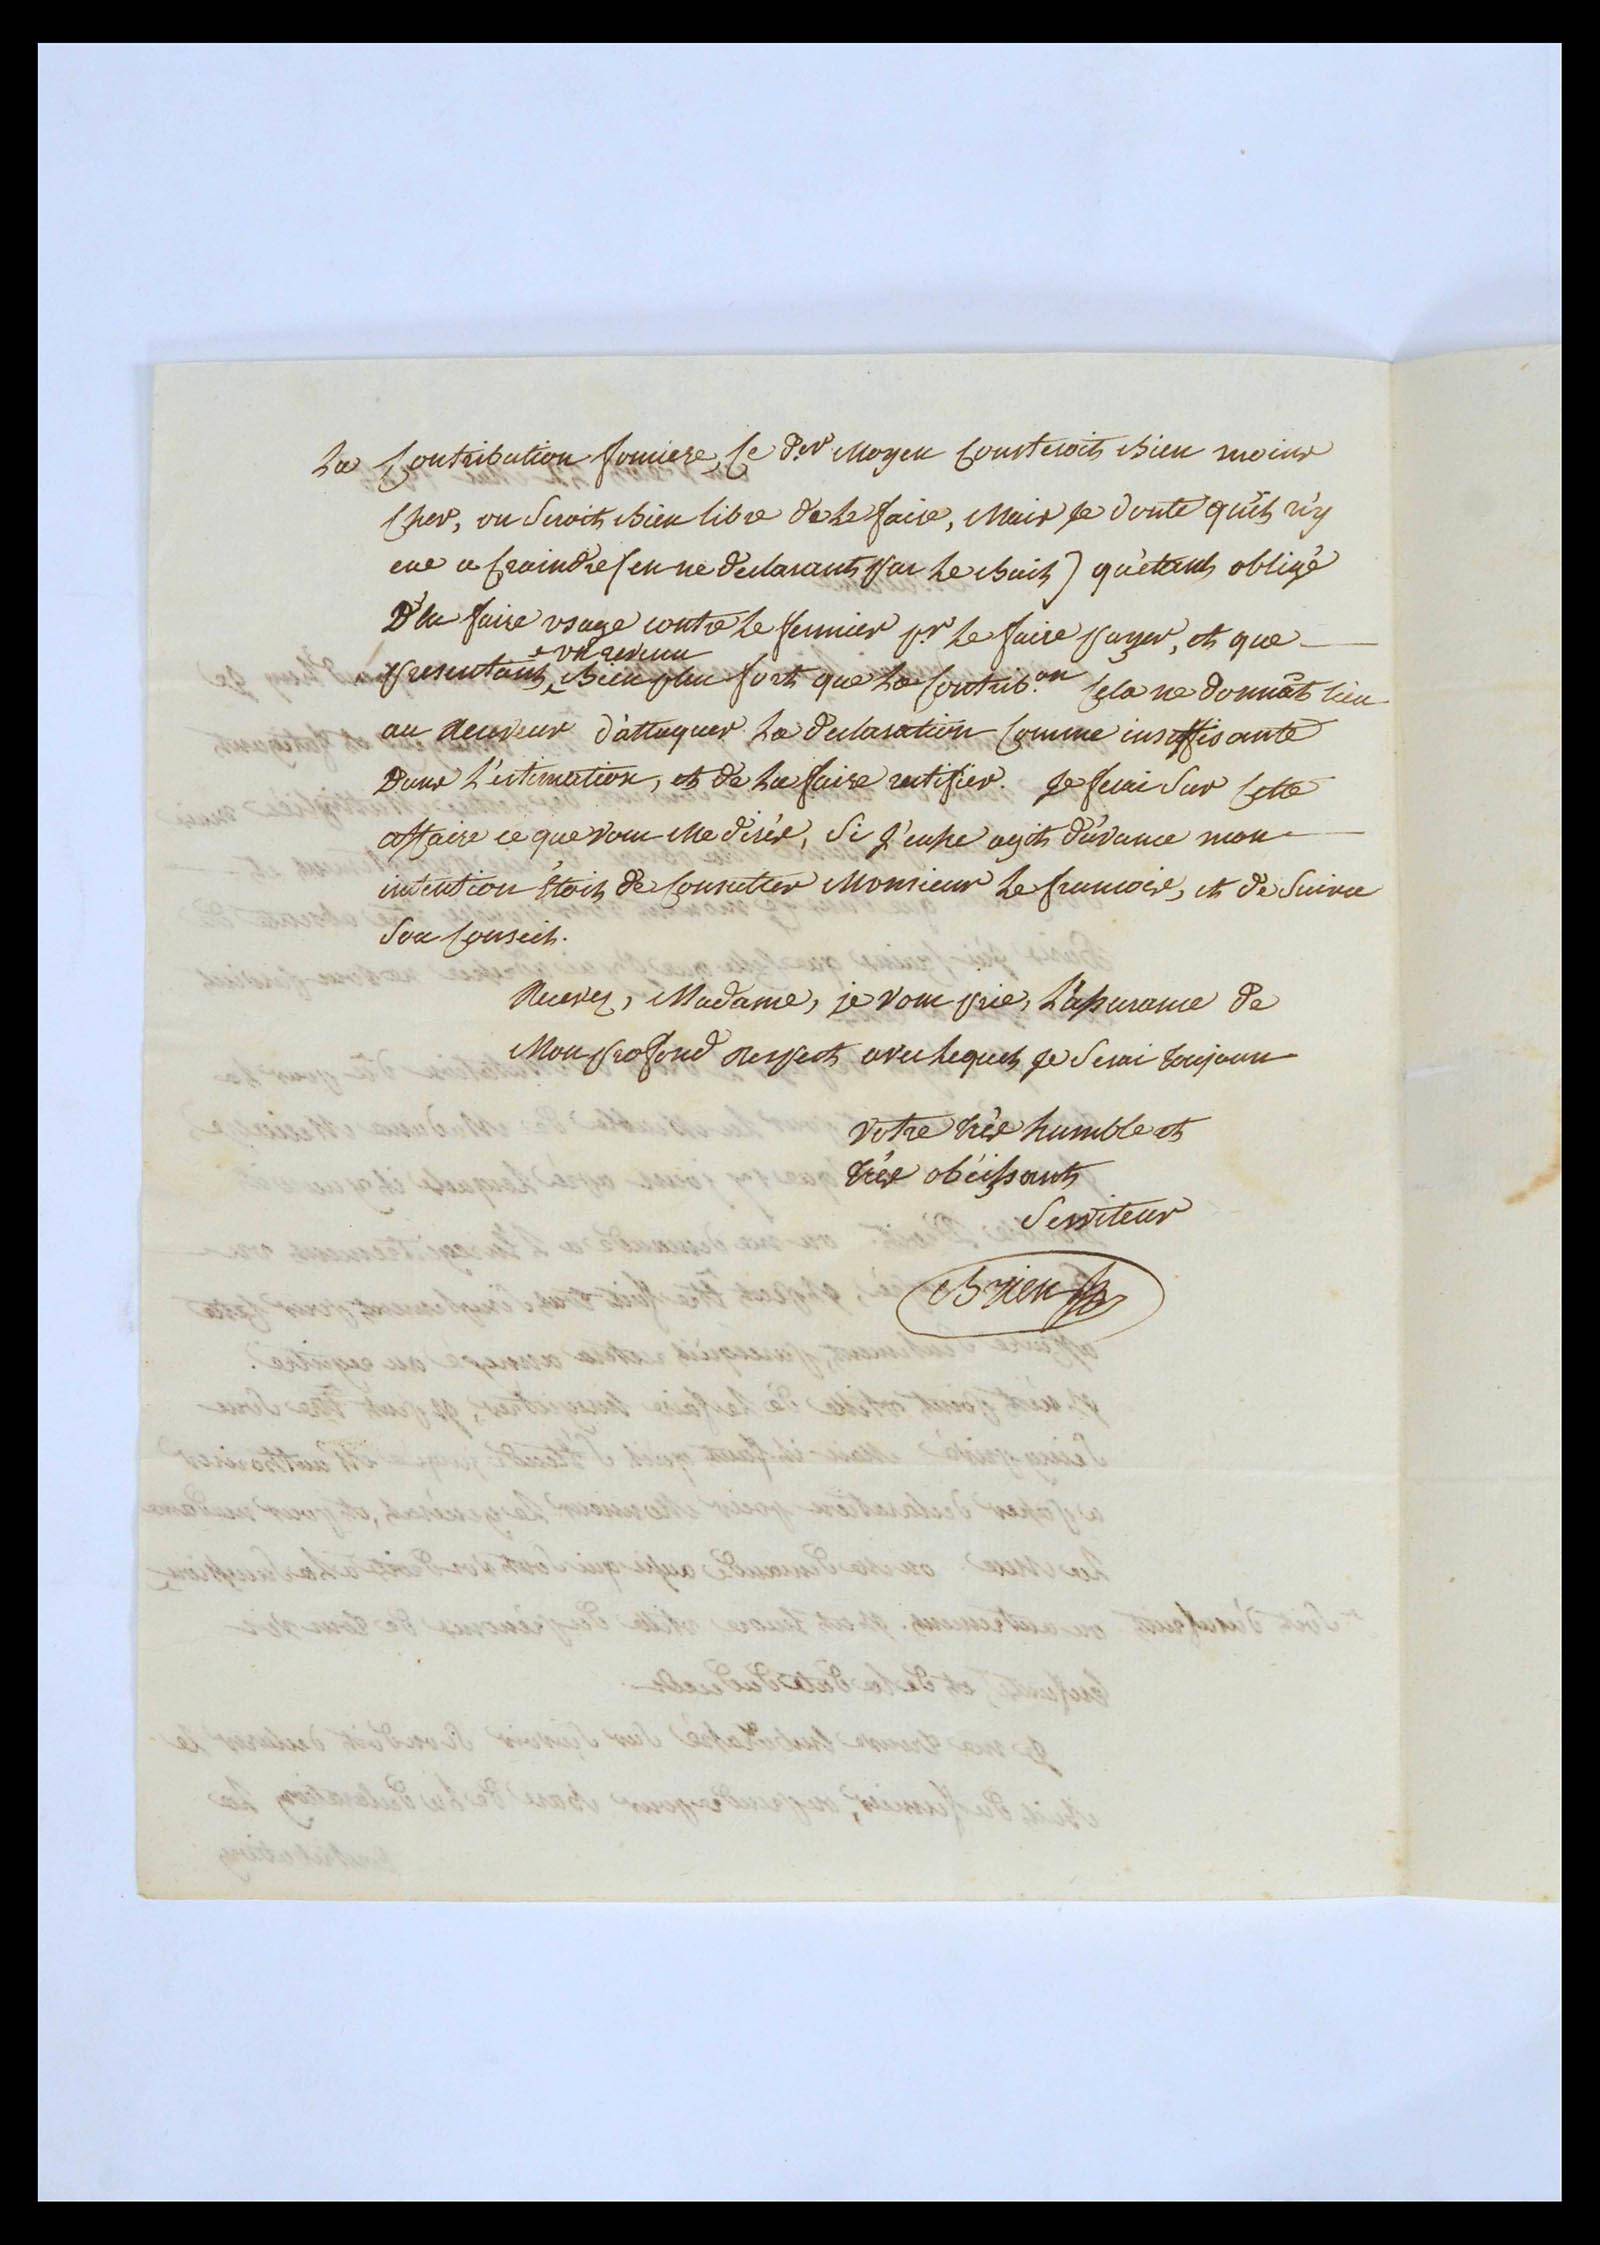 La Contribution fonciere, Ce d.er Moyen Cousteroit Bien moins
Cher, on Seroit Bien libre de Le faire, Mais Je doute qu'il n'y
eue a Craindre (en ne declarant pas Le Bail) qu'etant obligé
D'En faire usage contre Le fermier p.r Le faire payer, et que
un revenu
presentant Bien plus fort que La Contrib.on Cela ne donnât lieu
au Receveur d'attaquer La declaration Comme insuffisante
Dans L'estimation, et de La faire rectifier. Je ferai Sur Cette
affaire ce que vous Me dirés, Si J'eusse agit d'avance mon
intention Etoit de Consulter Monsieur Le francois, et de Suivre
Son Conseil.
Recevez, Madame, je vous prie, L'assurance de
Mon profond Respect avec Lequel Je Serai toujours
Votre très humble et
très obéissant
Serviteur
Brien